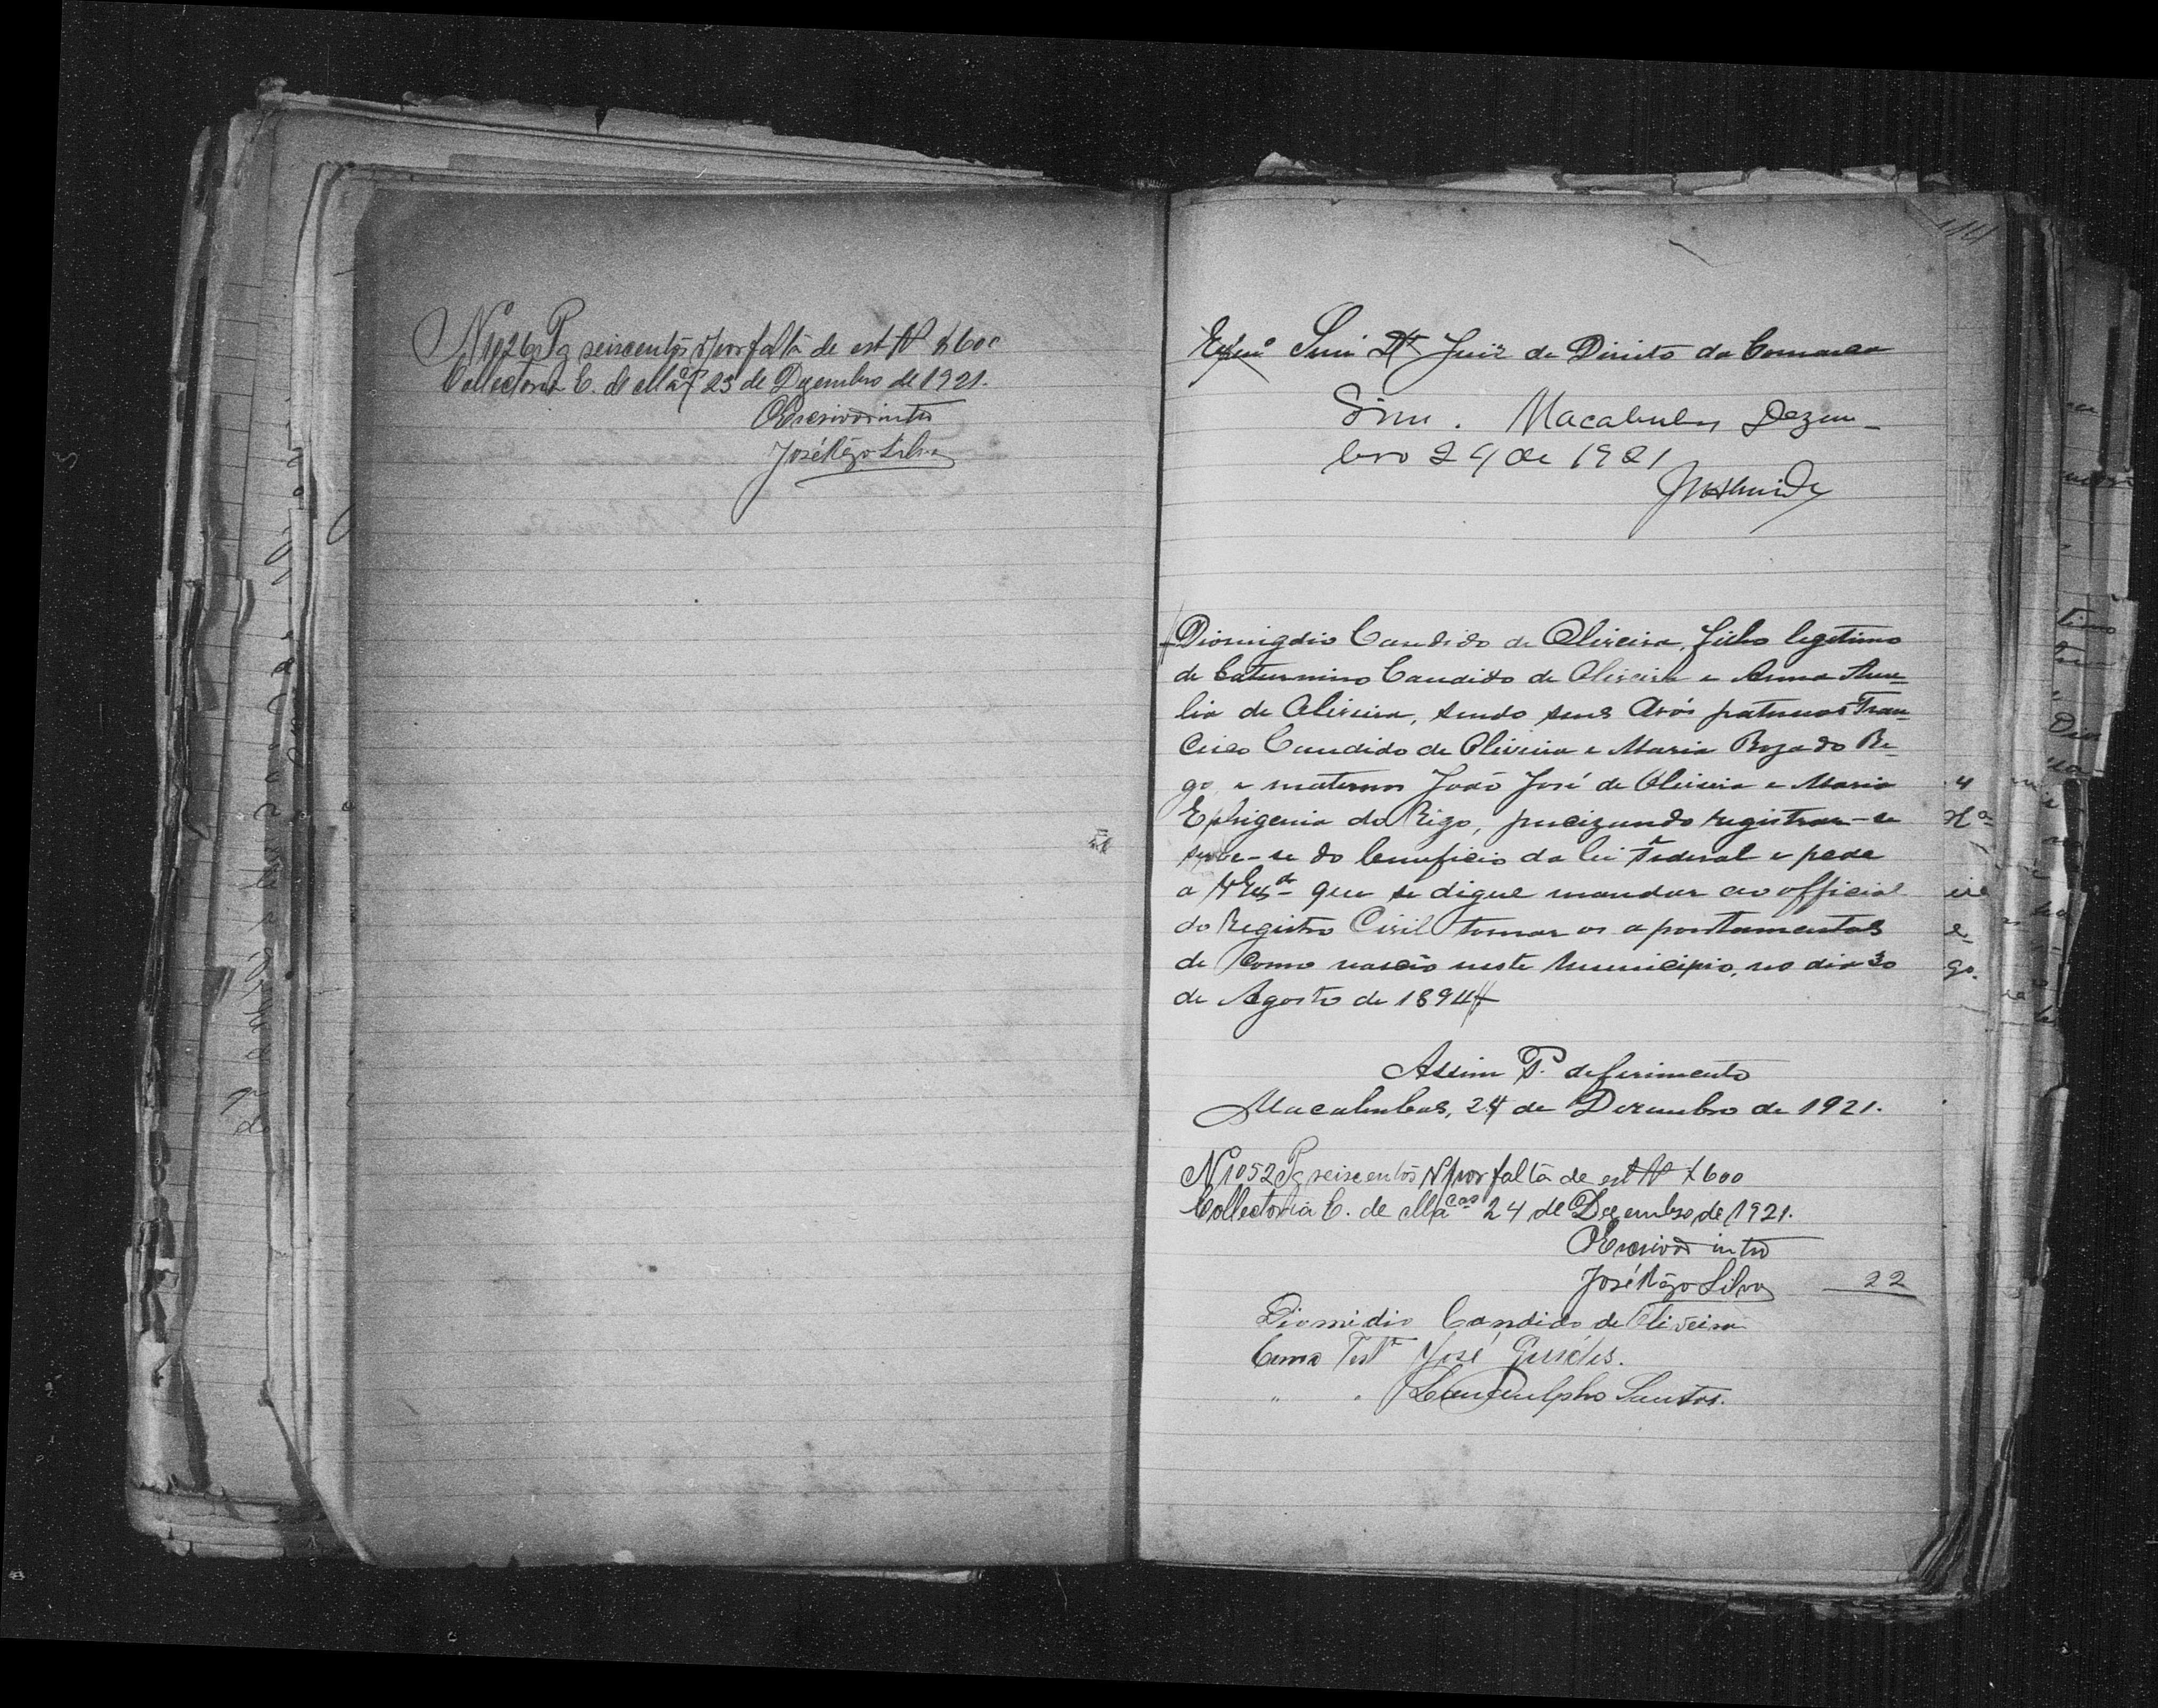 Nº 1026 Pg seiscentos rs por falta de est Rs $600
Collectoria E. de Mac 23 de Dezembro de 1921.
O Escrivão intº
José Rêgo Silva
114
Exmº Snri Dr Juiz de Direito da Comarca
Sim. Macahubas Dezem-
bro 24 de 1921
Diomigdio Candido de Oliveira, filho legitimo
de Saturnino Candido de Oliveira e Anna Ame-
lia de Oliveira, sendo seus Avós paternos Fran-
cisco Candido de Oliveira e Maria Roza do Re-
go, e maternos João José de Oliveira e Maria
Ephigenia do Rego, precizando registrar-se
serve-se do beneficio da lei Federal e pede
a V Exª que se digne mandar ao official
do Registro Civil tomar os apontamentos
de como nascêo neste Municipio, no dia 30
de Agosto de 1894
Assim P. deferimento
Macahubas, 24 de Dezembro de 1921.
Nº 1052 Pg seiscentos rs por falta de est Rs $600
Collectoria E. de Macas 24 de Dezembro de 1921.
O Escrivão intº
José Rêgo Silva
22
Diomidio Candido de Oliveira
Como Testª José Guédes.
" " Landulpho Santos.